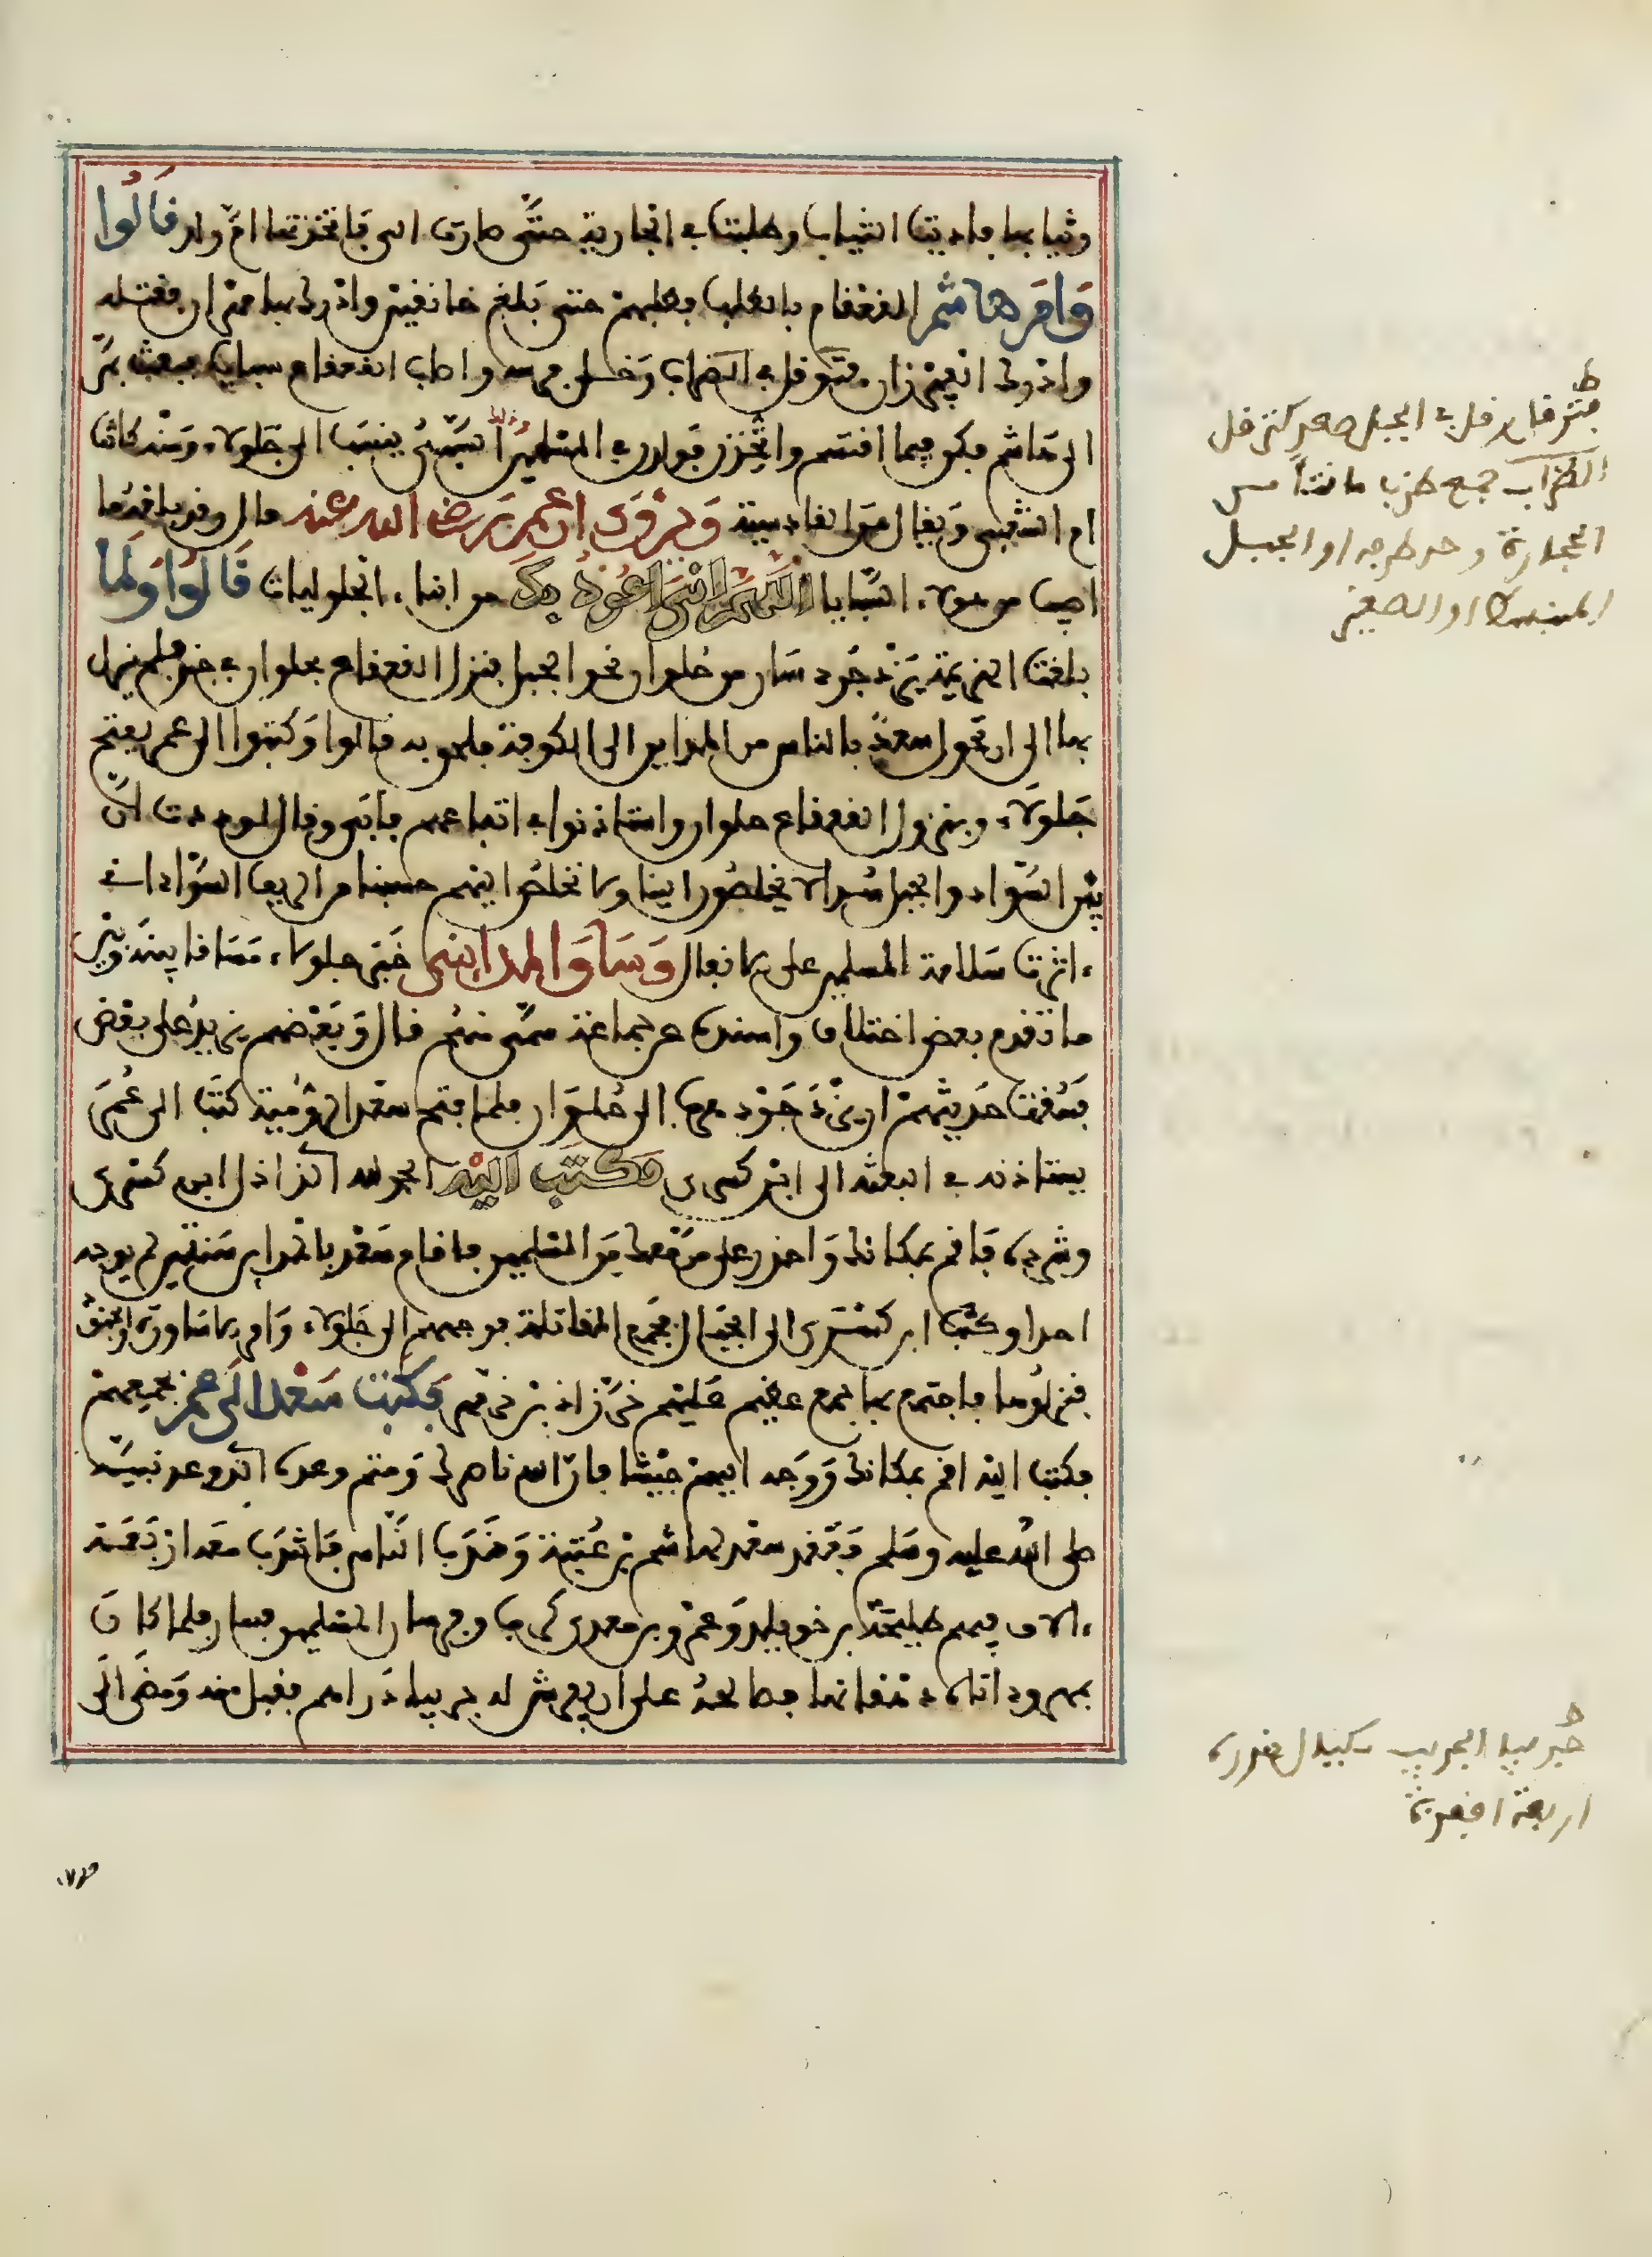 وثيابها فاديت الثياب وطلبت في الجارية حتى صارت الي فاتخذتها ام ولد قالوا
وامر هاشم القعقاع بالطلب فطلبهم حتى بلغ خانقين وادرك بها مهران فقتله
وادرك الفيرزان فتوقل في الظراب وخلى فرسه واصاب القعقاع سبايا فبعث بهم
الى هاشم فكن فيما اقتسم واتخذن فولدن في المسلمين وذلك السبي ينسب الى جلولاء ومنهن كانت
ام الشعبي ويقال من القادسية وذكروا ان عمر رضي الله عنه قال وقد بلغه ما
اصيب من هولاء السبايا اللهم اني اعوذ بك من ابناء الجلوليات قالوا ولما
بلغت الهزيمة يزدجرد سار من حلوان نحو الجبل فنزل القعقاع بحلوان في جند فلم يزل
بها الى ان تحول سعد بالناس من المداين الى الكوفة فلحق به قالوا وكتبوا الى عمر بفتح
جلولاء وبنزول القعقاع حلوان واستاذنوا في اتباعهم فابى وقال لوددت ان
بين السواد والجبل سدا لا يخلصون الينا ولا نخلص اليهم حسبنا من الريف السواد اني
ءاثرت سلامة المسلمين على الانفال وساق المدايني خبر جلولاء مساقا بينه وبين
ما تقدم بعض اختلاف واسنده عن جماعة سمى منهم قال وبعضهم يزيد على بعض
فسقت حديثهم ان يزدجرد هرب الى حلوان فلما فتح سعد الرومية كتب الى عمر
يستاذنه في البعثة الى ابن كسرى فكتب اليه الحمد لله الذي اذل ابن كسرى
وشرده فاقم بمكانك واحذر على من معك من المسلمين فاقام سعد بالمداين سنتين لم يوجه
احدا وكتب ابن كسرى الى الجبال فجمع المقاتلة فوجههم الى جلولاء وامر الاساورة
فنزلوها فاجتمع بها جمع عظيم عليهم خرزاذ بن خرهرمز فكتب سعد الى عمر بجميعهم
فكتب اليه اقم بمكانك ووجه اليهم جيشا فان الله ناصرك ومتم وعده الذي وعد نبيه
صلى الله عليه وسلم فعقد سعد لهاشم بن عتبة وندب الناس فانتدب معه اربعة
ءالاف فيهم طليحة بن خويلد وعمرو بن معدي كرب وفرسان المسلمين فسار فلما كان
بمهروذ اتاه دهقانها فصالحه على ان يفرش له جريبا دراهم فقبل منه ومضى الى
ط
فتوقل وقل في الجبل صعد كتوقل
الظراب جمع ظرب ما نتأ من
الحجارة وحد طرفه او الجبل
المنبسط او الصغير
ط
جريبا الجريب مكيال قدره
اربعة اقفزة